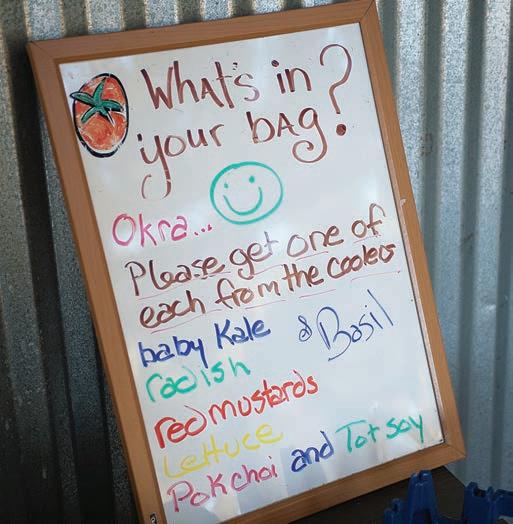 What's in
your bag?
Okra...
Please get one of
each from the coolers
baby Kale & Basil
radish
red mustards
Lettuce
Pokchoi and Tot soy